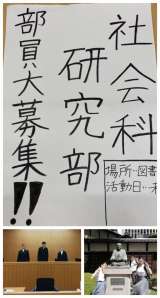 社会科
研究部
部員大募集!!
場所…図書
活動日…